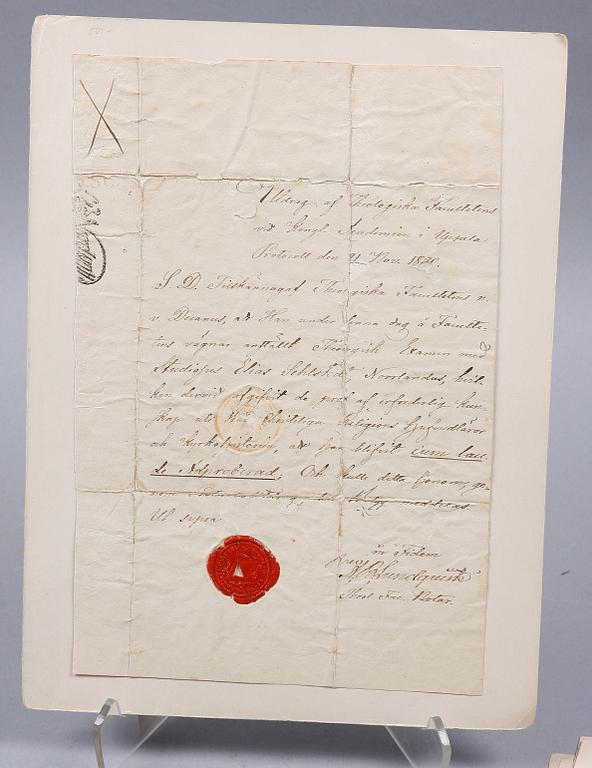 Utdrag af Theologiska Facultetens
vid Kongl. Academien i Upsala
Protocoll den 21 Nov. 1820.
S. D. Tillkännagaf Theologiska Facultetens n.
v. Decanus, at Han under denna dag å Faculte-
tens vägnar anställt Theologisk Examen med
Studiosus Elias Sehlstedt, Norrlandus, hvil-
ken dervid afgifvit de prof af erforderlig kun-
skap uti vår Christeliga Religions Grundläror
och Kyrkohistoria, att han blifvit cum lau-
de Adproberad; Och skulle detta honom, ge-
nom meddelas
Ut supra
in Fidem
Sundquist
Theol Fac. Notar.